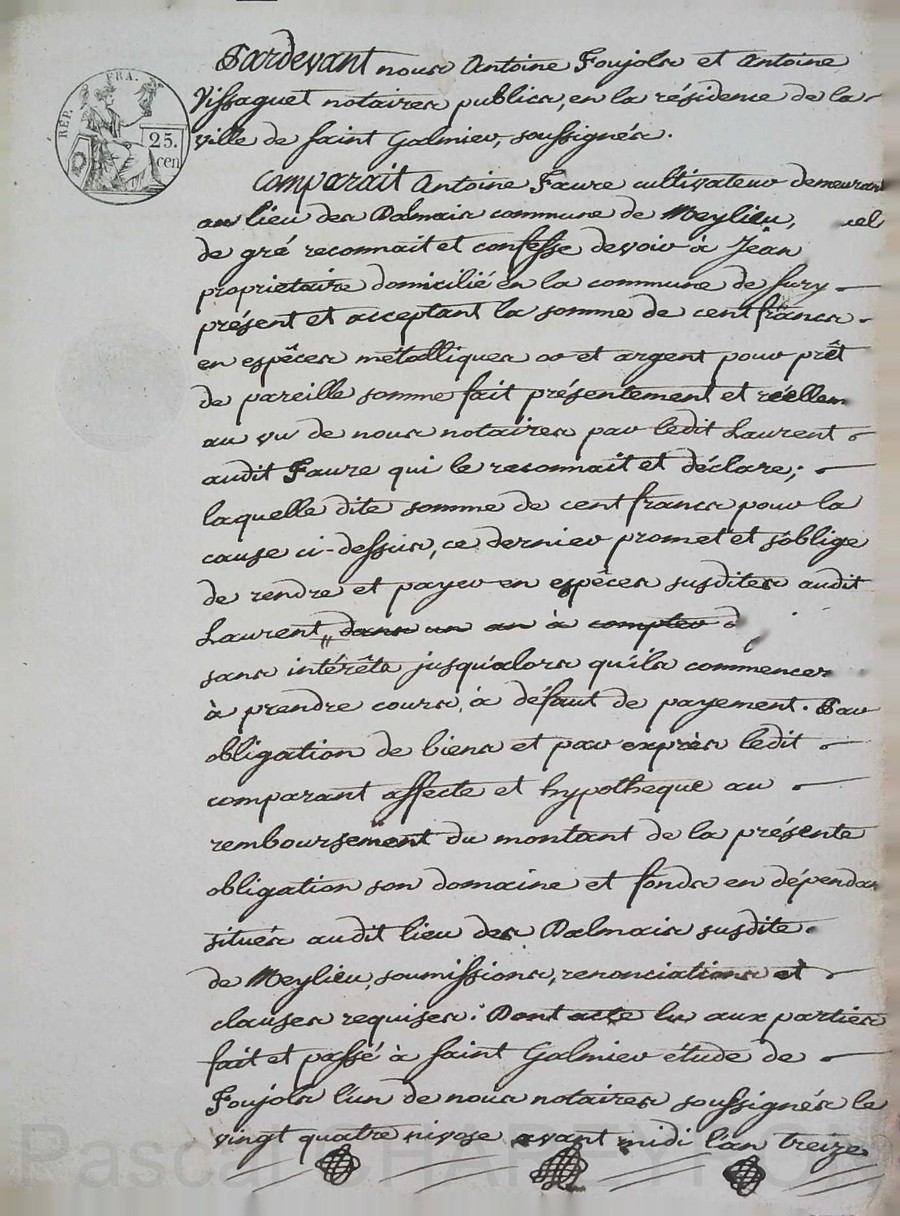 RÉP. FRA.
25.
cen
Pardevant nous Antoine Foujols et Antoine
Vissaguet notaires publics, en la résidence de la
ville de Saint Galmier, soussignés.
Comparaît Antoine Faure cultivateur demeurant
au lieu des Palmais commune de Meylieu,
de gré reconnait et confesse devoir à Jean
proprietaire domicilié en la commune de Sury
présent et acceptant la somme de cent francs
en espêces métalliques or et argent pour prêt
de pareille somme fait présentement et réellem
au vu de nous notaires par ledit Laurent
audit Faure qui le reconnait et déclare;
laquelle dite somme de cent francs pour la
cause ci-dessus, ce dernier promet et s'oblige
de rendre et payer en espêces susdites audit
Laurent, dans un an à compter d
sans intérêts jusqu'alors qu'ils commencer
à prendre cours, à défaut de payement. Par
obligation de biens et par exprès ledit
comparant affecte et hypotheque au
remboursement du montant de la présente
obligation son domaine et fonds en dépendan
situés audit lieu des Palmais susdite
de Meylieu, soumissions, renonciations et
clauses requises: Dont acte lu aux parties
fait et passé à Saint Galmier étude de
Foujols l'un de nous notaires soussignés le
vingt quatre nivose avant midi l'an treize
Pascal CHAREYRON